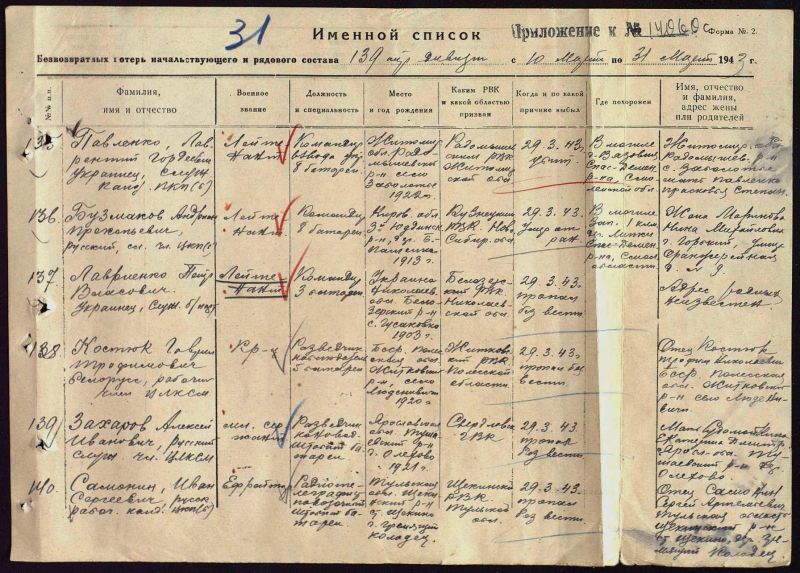 31
Именной список
Приложение к № 14060с
Форма № 2.
Безвозвратных потерь начальствующего и рядового состава 139 стр дивизии с 10 Марта по 31 Марта 1943 г.
№№ п.п.
Фамилия, имя и отчество
Военное звание
Должность и специальность
Место и год рождения
Каким РВК и какой областью призван
Когда и по какой причине выбыл
Где похоронен
Имя, отчество и фамилия, адрес жены или родителей
135
Павленко, Лав
рентий Гордеевич
Украинец, служ
канд. ВКП(б)
Лейте
нант
Командир
взвода упр
8 батареи
Житомир
обл. Радо
мышевский
р-н село
Заболотье
Радомышль
ским РВК
Житомир
ской обл.
29.3.43.
убит.
В могиле
Спас-Демен.
Смо
ленской обл.
Житомир. обл.
Радомышев. р-н
с. Заболотье
мать Павленко
136.
Бузмаков Андриан
Прокопьевич,
русский, сл. ВКП(б)
Лейте
нант.
Командир
8 батареи
Киров. обл.
р-н, дер. Б-
1913 г.
Кузнецким
РВК Ново
Сибир. обл
29.3.43.
Умер от
ран.
В могиле
Зап. 1 клм
Спас-Демен.
р-на, Смол.
области
Жена
Нина Михайловна
г. Горький, улица
д. № 9.
137.
Лавриненко Петр
Власович.
Украинец, служ. б/парт
Лейте-
нант
Командир
3 батареи
Украина
Николаев.
обл. Бело-
зерский р-н
1903 г.
ский РВК
Николаев-
ской обл.
29.3.43.
пропал
без вести.
Адрес родных
неизвестен.
138
Костюк Гаврил
Трофимович
белорус, рабочий
член ВЛКСМ
Кр-ц
Разведчик
5 батареи
БССР. Поле
ская обл.
Житковский
р-н, село
Людневичи
1920 г
Житкович
ским РВК
Полесской
области.
29.3.43.
пропал без
вести.
Отец Костюк
Трофим Николаевич
БССР. Полесская
обл. Житковский
р-н село Людене
вичи.
139
Захаров Алексей
Иванович, русский
служ. чл. ВЛКСМ
мл. сер
жант
Разведчик
батареи
Ярославская
обл.
р-н
Олехово.
1921 г.
Свердловск
ГВК
29.3.43.
пропал
без вести
Мать
Екатерина Дмитр.
Яросл. обл. Ту
таевский р-н
Олехово.
140.
Самохин, Иван
Сергеевич русск
рабоч. канд. ВКП(б)
Ефрейтор
Радиоте
леграфист
батареи.
Тульская
обл. Щекин
ский р-н
ст. Щекино
колодец
Щекинским
РВК
Тульской
обл.
29.3.43.
пропал
без вести.
Отец Самохин
Сергей Артемьевич
Тульская область
Щекинский р-н
ст. Щекино, дер.
Колодец